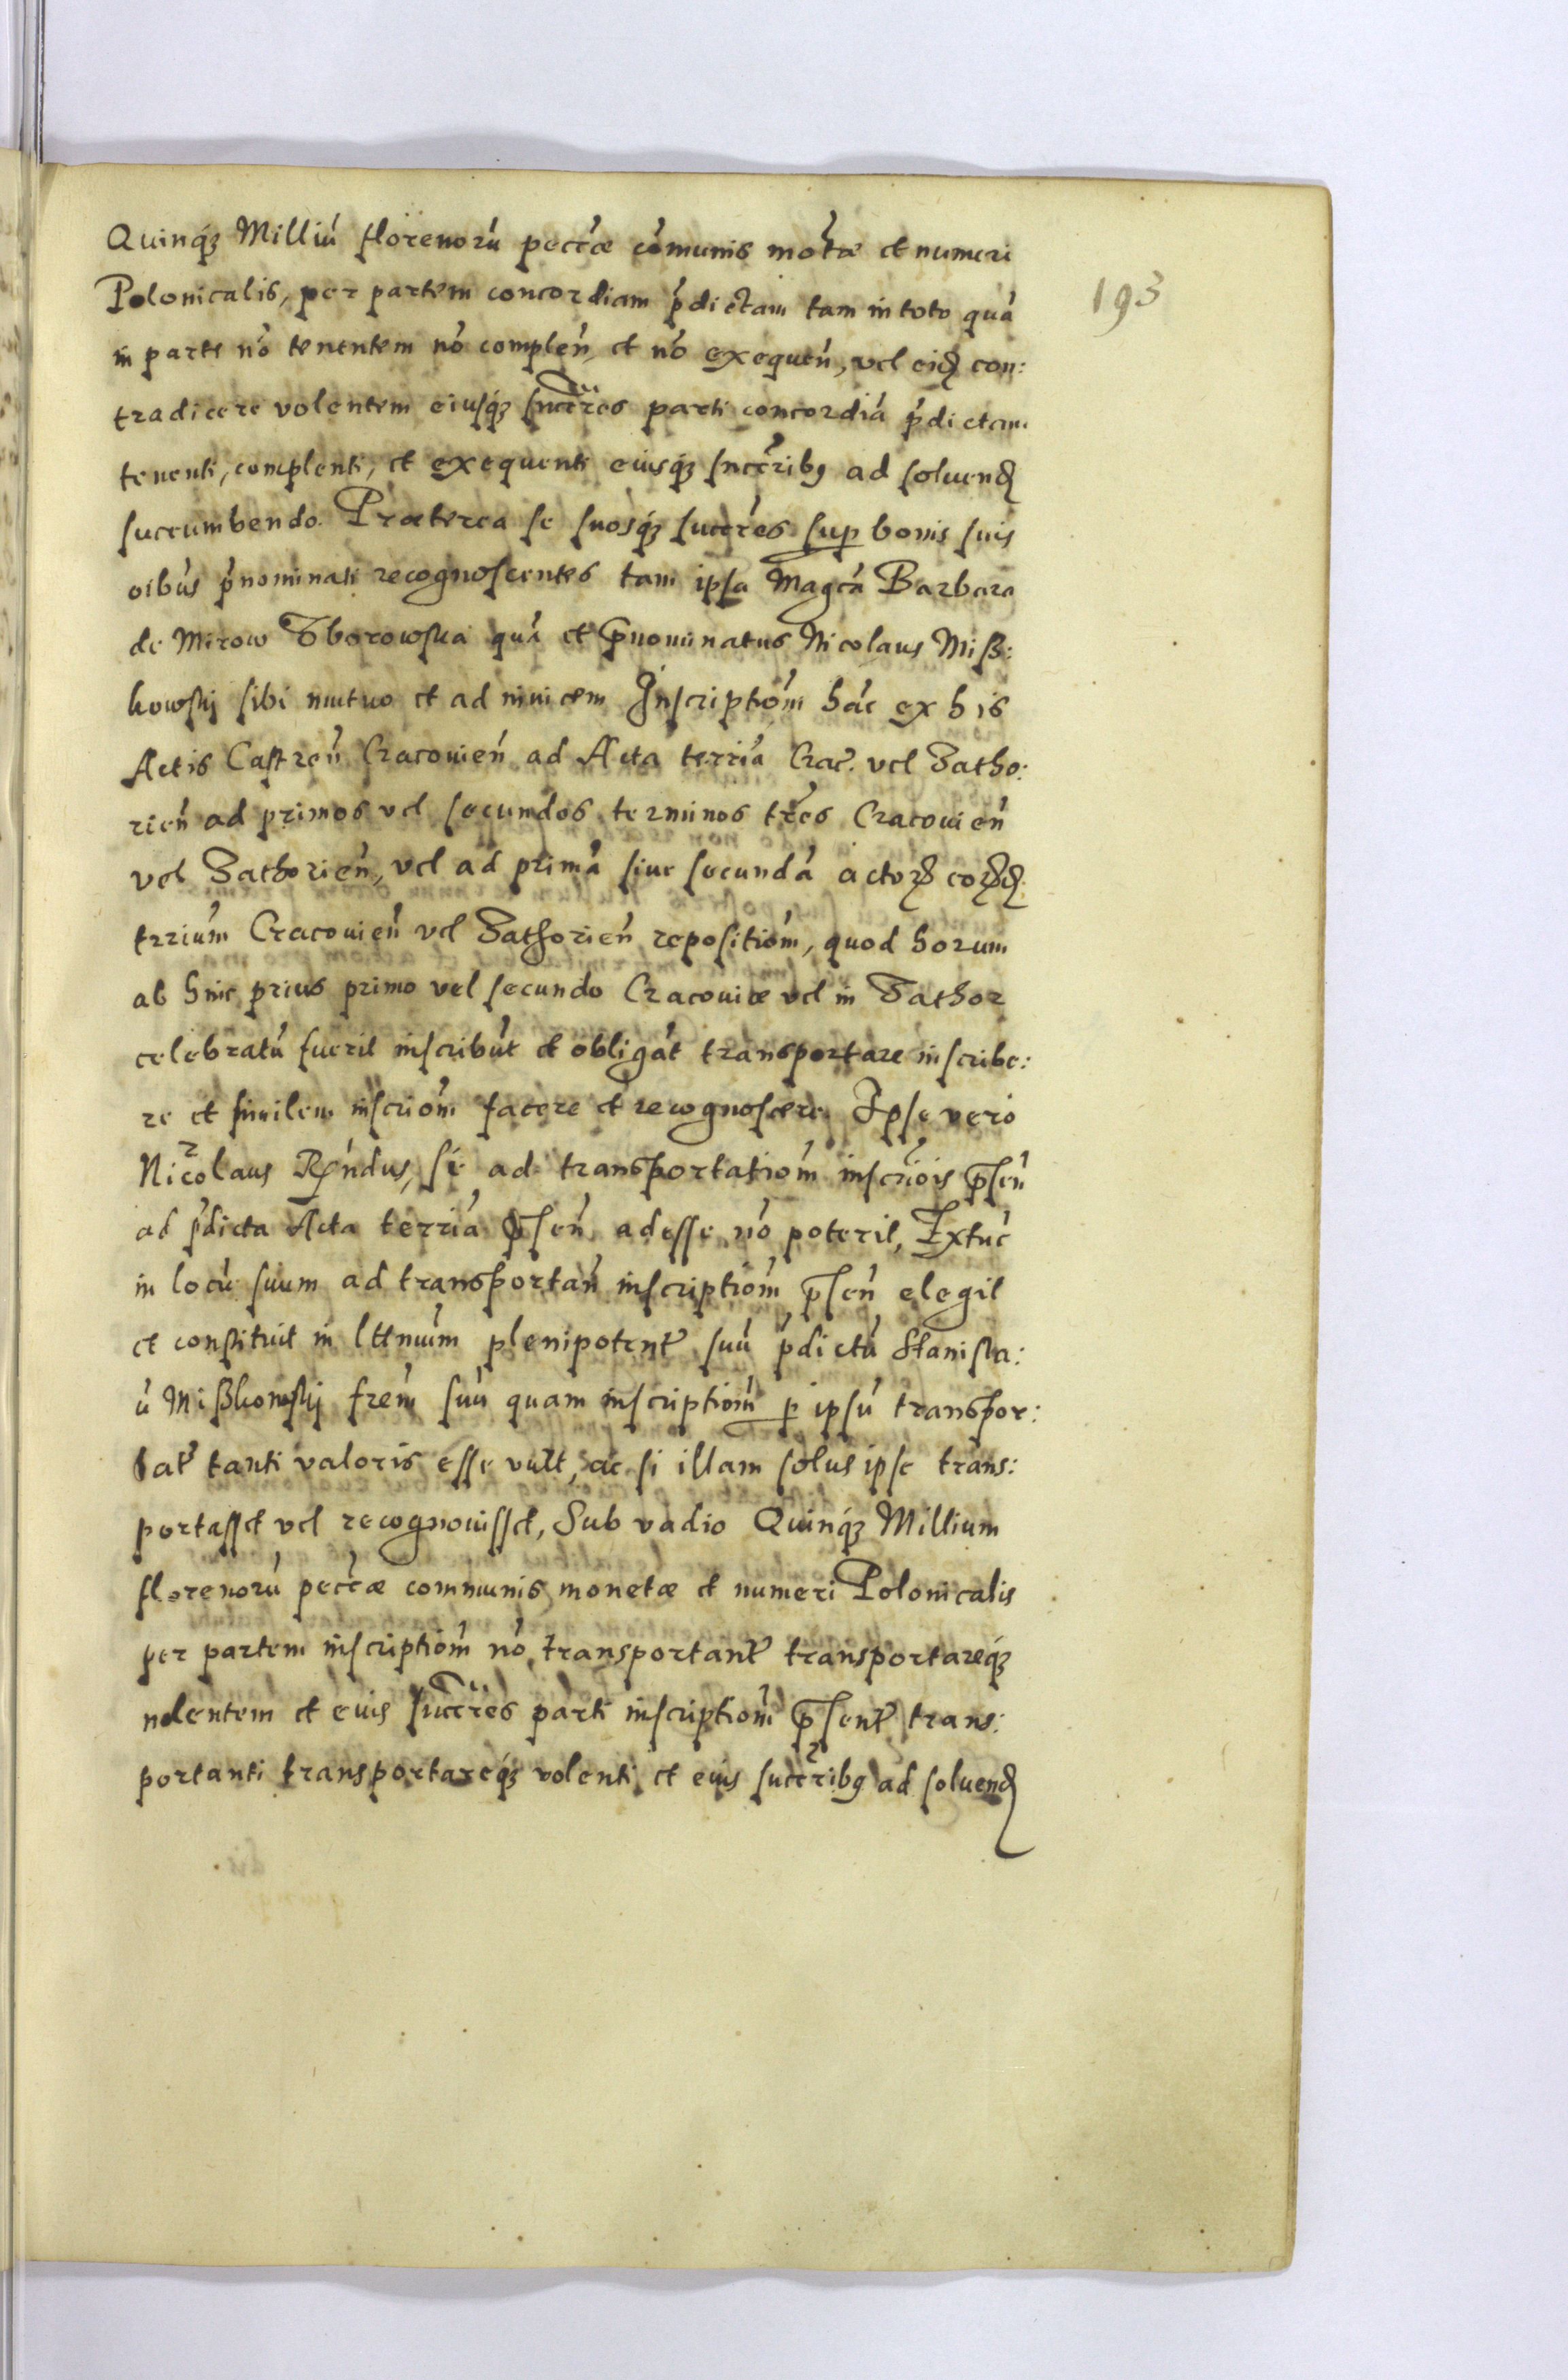 Quinq́ꝫ Milliú florenorú pecćæ cómunis motæ et numeri
193
Polonicalis, per partem concordiam ṕdictam tam in toto quá
in parte nó tenentem nó compleń, et nó exequeń, vel eidꝫ con:
tradicere volentem eiusq́ꝫ succres parti concordiá ṕdictam
tenenti, complenti, et exequenti eiusq́ꝫ succribꝰ ad soluendꝫ
succumbendo. Præterea se suosq́ꝫ succres sup bonis suis
oibús ṕnominati recognoscentes tam ipsa Magcá Barbara
de Mirow Zborowska quá et p̄nominatus Nicolaus Miß:
kowskj sibi mutuo et ad inuicem Inscriptióm hác ex his
Actis Castreń Cracouień ad Acta terriá Crac. vel Zatho:
rień ad primos vel secundos terminos trés Cracouień
vel Zathorień, vel ad primá siue secundá actoꝝ coꝝdꝫ
trrium Cracouień vel Zathorień repositióm, quod horum
ab hinc prius primo vel secundo Cracouiæ vel in Zathor
celebratú fuerit inscribút et obligát transportare inscribe:
re et similem inscrióm facere et recognoscere. Ipse vero
Nicolaus Rńdus, si ad transportatióm inscriois p̄señ
ad ṕdicta Acta terriá p̄señ adesse nó poterit, Extúc
in locú suum ad transportań inscriptióm p̄señ elegit
et constituit in lttnuúm plenipotent suú ṕdictú Stanisla:
ú Mißkowskj frem suú quam inscriptióm p ipsú transpor:
tat tanti valoris esse vult, ac si illam solus ipse trans:
portasset vel recognouisset, Sub vadio Quinq́ꝫ Millium
florenorú pecćæ communis monetæ et numeri Polonicalis
per partem inscriptióm nó transportant transportareq́ꝫ
nolentem et euis succres parti inscriptióm p̄sent trans:
portanti transportareq́ꝫ volenti et eius succribꝰ ad soluendꝫ